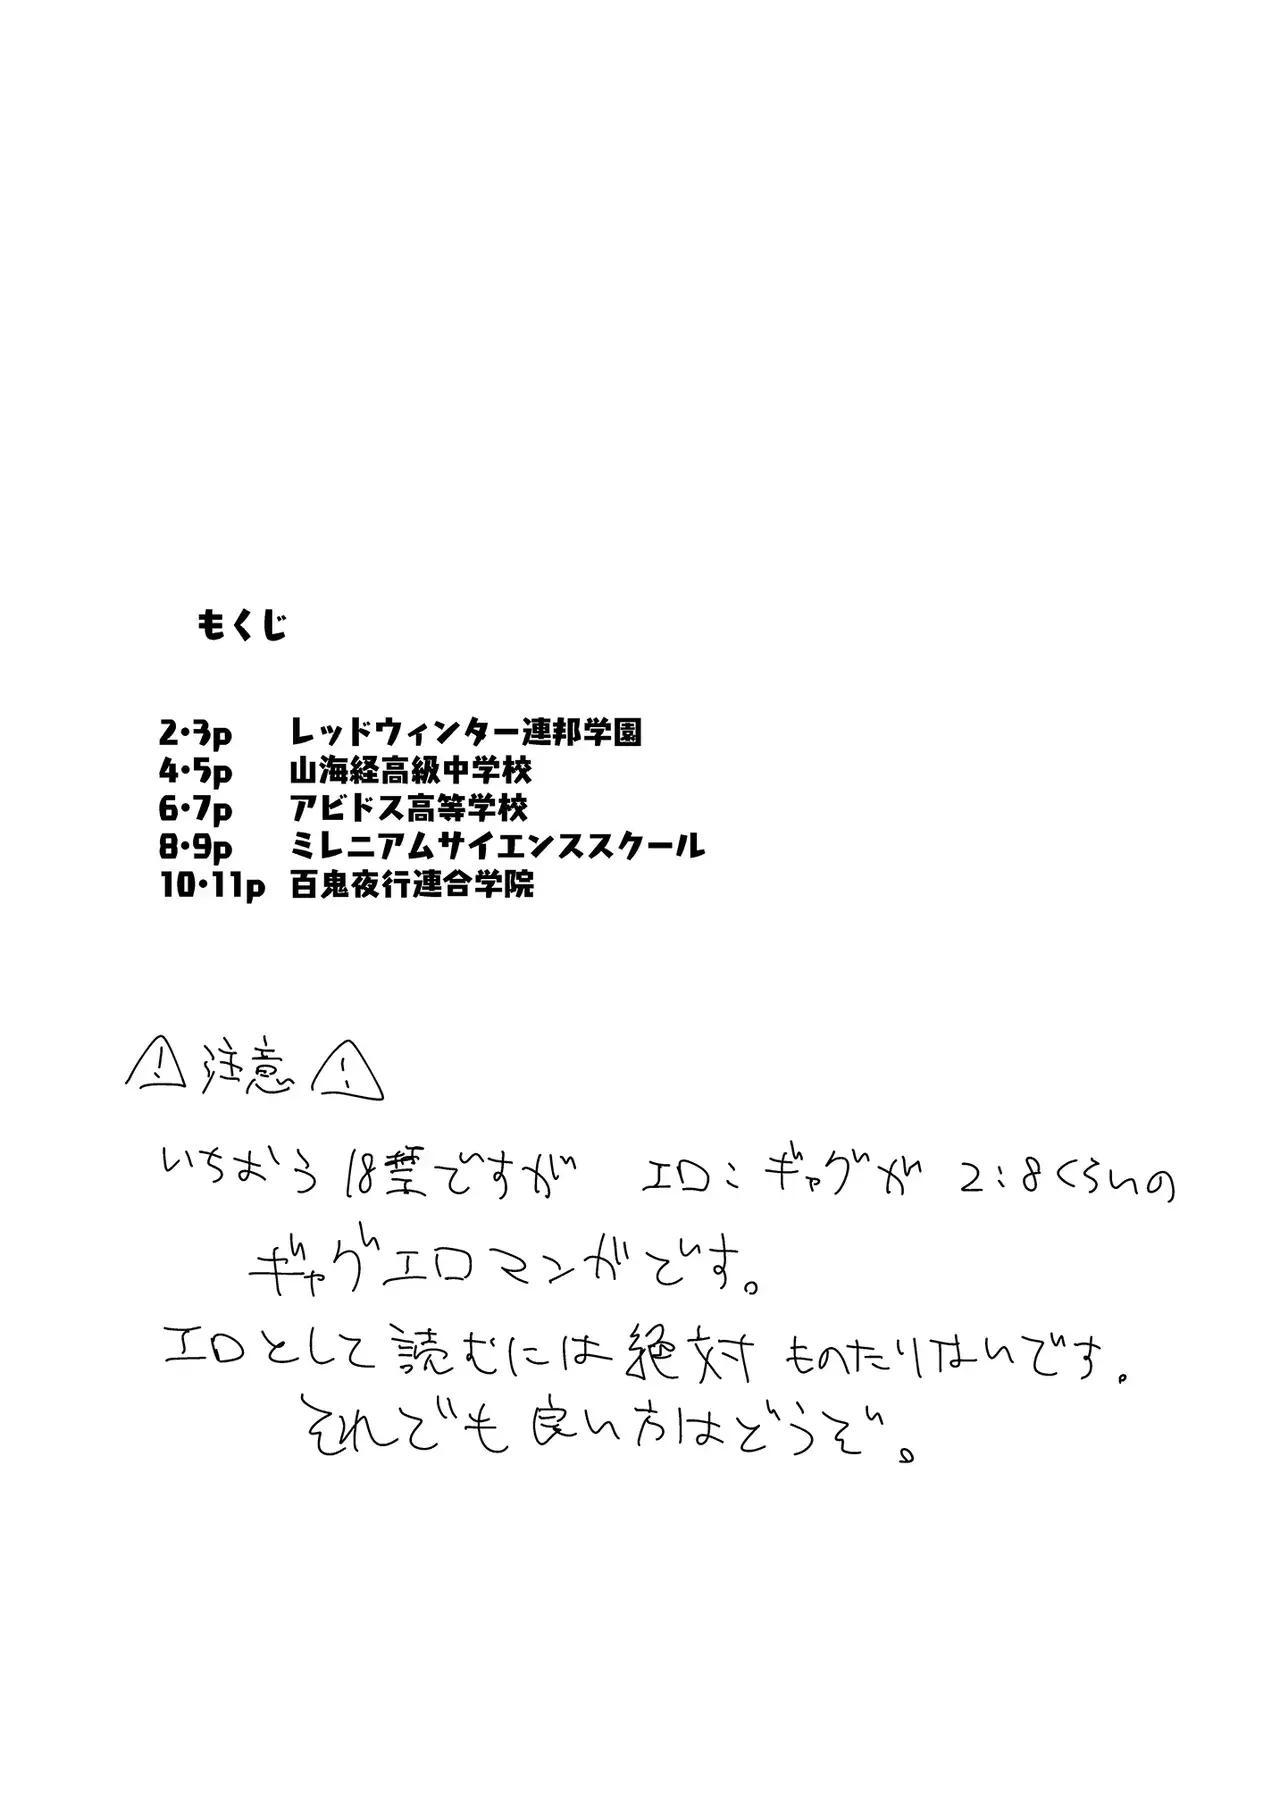 もくじ
2・3p レッドウィンター連邦学園
4・5p 山海経高級中学校
6・7p アビドス高等学校
8・9p ミレニアムサイエンススクール
10・11p 百鬼夜行連合学院
⚠注意⚠
いちおう18禁ですが エロ:ギャグが 2:8くらいの
ギャグエロマンガです。
エロとして読むには絶対ものたりないです.
それでも良い方はどうぞ。